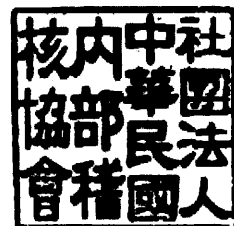 社團法人
中華民國
內部稽
核協會